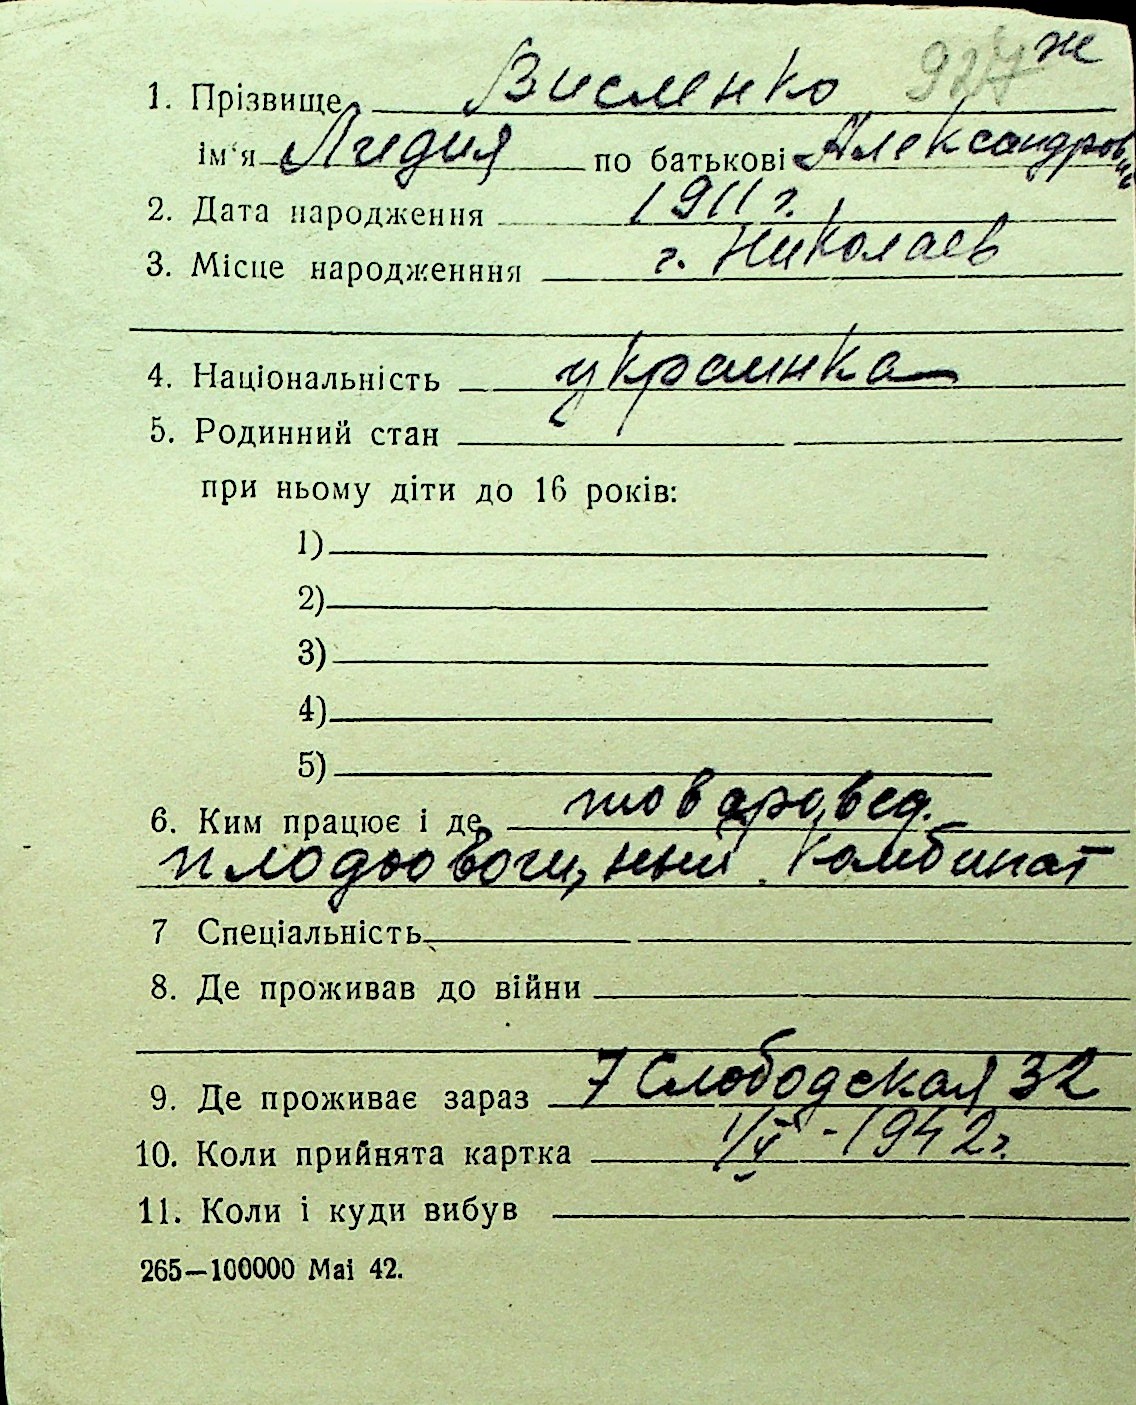 927 ж
1. Прізвище Висленко
ім'я Лидия по батькові Александровна
2. Дата народження 1911 г.
3. Місце народженння г. Николаев
4. Національність украинка
5. Родинний стан
при ньому діти до 16 років:
1)
2)
3)
4)
5)
6. Ким працює і де товаровед.
плодоовощный комбинат
7 Спеціальність
8. Де проживав до війни
9. Де проживає зараз 7 Слободская 32
10. Коли прийнята картка 1/V - 1942 г.
11. Коли і куди вибув
265—100000 Mai 42.